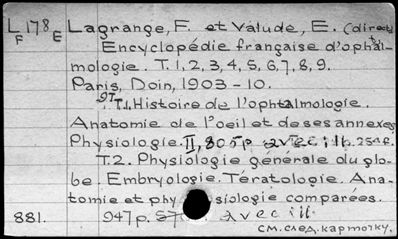 L F 178 E Lagrange, F. et Valude, E. (direct
Encyclopédie française d'ophtal-
mologie. T. 1, 2, 3, 4, 5, 6, 7, 8, 9.
Paris, Doin, 1903-10.
T.1. Histoire de l'ophtalmologie.
Anatomie de l'oeil et de ses annexes
Physiologie. II, 805 p. avec ill.
T.2. Physiologie générale du glo-
be. Embryologie. Tératologie. Ana-
tomie et phy siologie comparées.
881. 947 p. avec ill.
см. след. карточку.